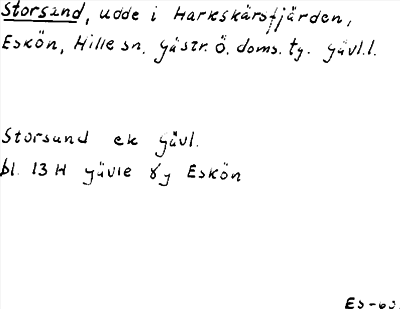 Storsand, udde i Harkskärsfjärden,
Eskön, Hille sn. Gästr. Ö. doms. tg. Gävl.l.
Storsand ek Gävl.
bl. 13 H Gävle 8g Eskön
ES-63